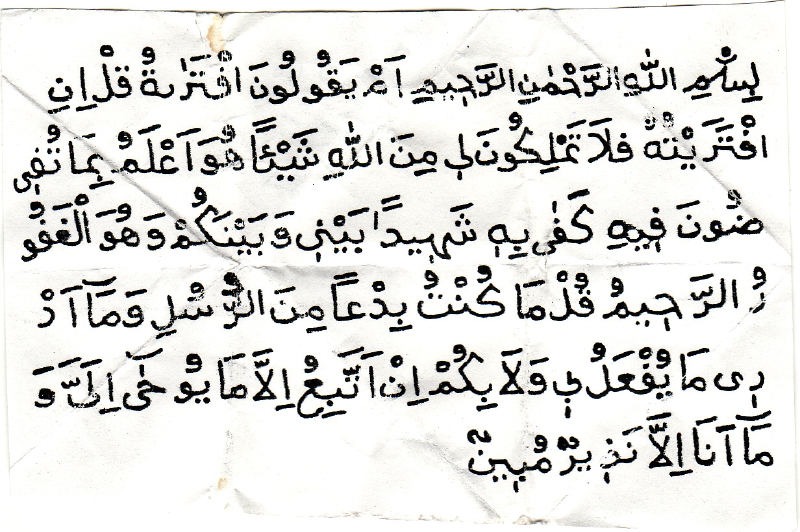 بِسْمِ اللّٰهِ الرَّحْمٰنِ الرَّحِيمِ اَمْ يَقُولُونَ افْتَرٰىهُ قُلْ اِنِ
افْتَرَيْتُهُ فَلَا تَمْلِكُونَ لِي مِنَ اللّٰهِ شَيْئًا هُوَ اَعْلَمُ بِمَا تُفِي
ضُونَ فِيهِ كَفٰى بِهِ شَهِيدًا بَيْنِي وَبَيْنَكُمْ وَهُوَ الْغَفُو
رُ الرَّحِيمُ قُلْ مَا كُنْتُ بِدْعًا مِنَ الرُّسُلِ وَمَٓا اَدْ
رِى مَا يُفْعَلُ بِي وَلَا بِكُمْ اِنْ اَتَّبِعُ اِلَّا مَا يُوحٰٓى اِلَىَّ وَ
مَٓا اَنَا اِلَّا نَذِيرٌ مُبِينٌ